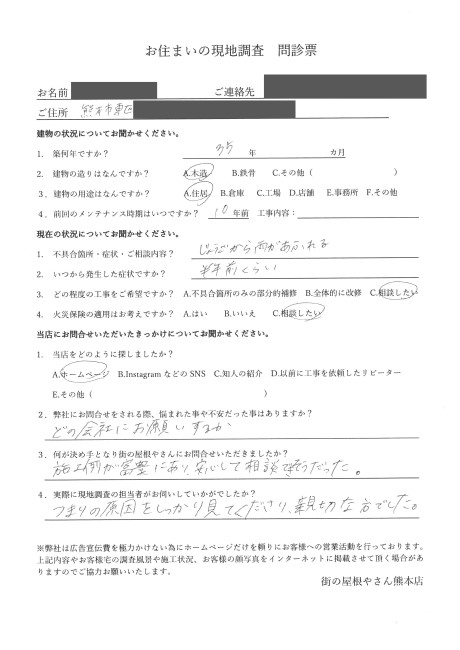 お住まいの現地調査　問診票
お名前　ご連絡先
ご住所　熊本市東区
建物の状況についてお聞かせください。
1．築何年ですか？　35　年　カ月
2．建物の造りはなんですか？　A.木造　B.鉄骨　C.その他（　）
3．建物の用途はなんですか？　A.住居　B.倉庫　C.工場　D.店舗　E.事務所　F.その他
4．前回のメンテナンス時期はいつですか？　10　年前　工事内容：
現在の状況についてお聞かせください。
1．不具合箇所・症状・ご相談内容？　じょうごから雨があふれる
2．いつから発生した症状ですか？　半年前くらい
3．どの程度の工事をご希望ですか？　A.不具合箇所のみの部分的補修　B.全体的に改修　C.相談したい
4．火災保険の適用はお考えですか？　A.はい　B.いいえ　C.相談したい
当店にお問合せいただいたきっかけについてお聞かせください。
1．当店をどのように探しましたか？
A.ホームページ　B.Instagram などの SNS　C.知人の紹介　D.以前に工事を依頼したリピーター
E.その他（　）
2．弊社にお問合せをされる際、悩まれた事や不安だった事はありますか？
どの会社にお願いするか
3．何が決め手となり街の屋根やさんにお問合せいただきましたか？
施工例が富豊にあり、安心して相談できそうだった。
4．実際に現地調査の担当者がお伺いしていかがでしたか？
つまりの原因をしっかり見てくださり、親切な方でした。
※弊社は広告宣伝費を極力かけない為にホームページだけを頼りにお客様への営業活動を行っております。
上記内容やお客様宅の調査風景や施工状況、お客様の顔写真をインターネットに掲載させて頂く場合があ
りますのでご協力お願いいたします。
街の屋根やさん熊本店